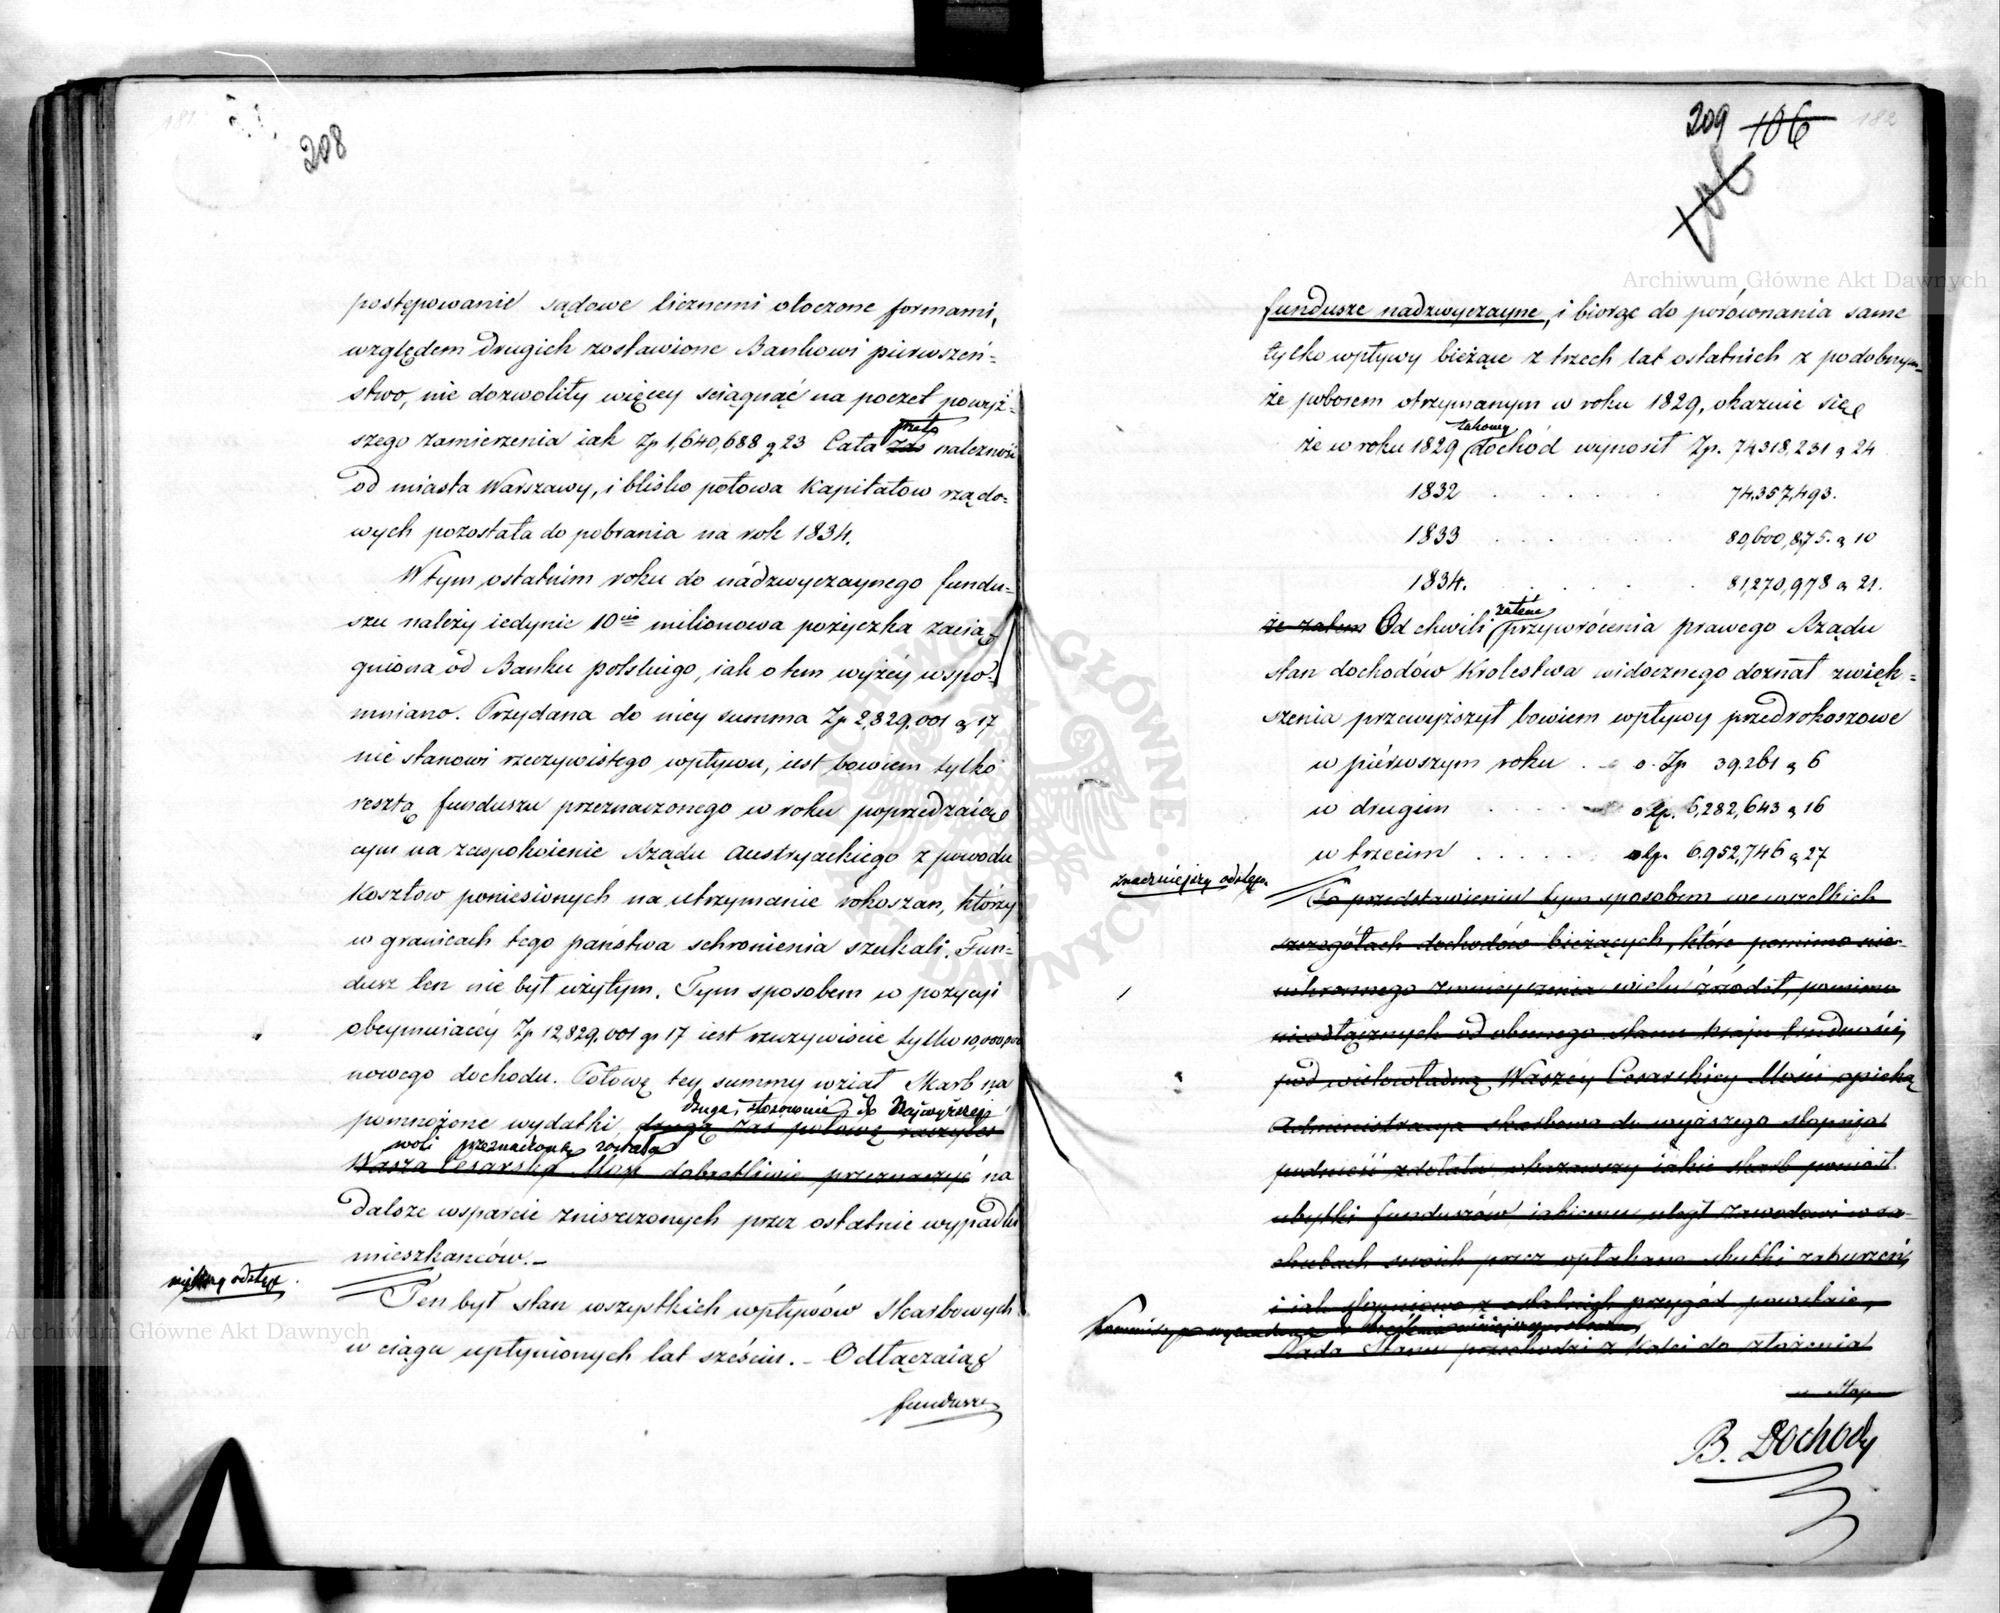 181
208
postępowanie sądowe licznemi otoczone formami,
względem drugich zostawione Bankowi pierwszeń=
stwo, nie dozwoliły więcey sciągnąć na poczet powyż=
szego zamierzenia iak Zp 1,640,688 g 23 Cała zas przeto należność
od miasta Warszawy, i blisko połowa Kapitałow rządo=
wych pozostała do pobrania na rok 1834.
W tym ostatnim roku do nádzwyczaynego fundu=
szu należy iedynie 10cio milionowa pożyczka zacią=
gniona od Banku polskiego, iak o tem wyżéy wspo=
mniano. Przydana do niey summa Zp 2,829,001 g 17
nie stanowi rzeczywistego wpływu, iest bowiem tylko
resztą funduszu przeznaczonego w roku poprzedzaią=
cym na zaspokoienie Rządu Austryackiego z powodu
Kosztow poniesionych na utrzymanie rokoszan, którzy
w granicach tego państwa schronienia szukali. Fun=
dusz ten nie był użytym. Tym sposobem w pozycyi
obeymuiącéy Zp 12,829,001 gr 17 iest rzeczywiście tylko 10,000,000
nowego dochodu. Połowę tey summy wziął Skarb na
druga, stosownie do Naywyższéj
pomnożone wydatki, drugą zas połowę raczyłeś
woli przeznaczoną została
Wasza Cesarska Mość dobrotliwie przeznaczyć na
dalsze wsparcie zniszczonych przez ostatnie wypadki
mieszkańców.
odstęp.
Ten był stan wszystkich wpływów Skarbowych
w ciągu upłynionych lat sześciu. Odłączaiąc
fundusze
209 106 182
106
fundusze nadzwyczayne, i biorąc do porównania same
tylko wpływy bieżące z trzech lat ostatnich z podobnym=
że poborem otrzymanym w roku 1829, okazuie się
że w roku 1829 takowy dochód wynosił Zp. 74,318,231 g 24
1832 . . . . 74,357,493.
1833 . . . . 80,600,875. g 10
1834. . . . 81,270,978 g 21.
że zatem Od chwili zatém przywrócenia prawego Rządu
stan dochodów Krolestwa widocznego doznał zwięk=
szenia przewyższył bowiem wpływy przedrokoszowe
w piérwszym roku . . o Zp 39.261 g 6
w drugim . . . . o Zp. 6,282,643 g 16
w trzecim . . . . o Zp. 6.952,746 g 27
znaczniejszy odstęp.
Po przedstawieniu tym sposobem we wszelkich
szczegółach dochodów bieżących, które pomimo nie=
uchronnego zmnieyszenia wielu źródeł, pomimo
nieodłącznych od obecnego stanu kraju trudności,
pod wielowładną Waszéy Cesarskiey Mości opieką
Administracya skarbowa do wyższego stopnia
podnieść zdołała, okazawszy iakie skarb poniósł
ubytki funduszów, iakiemu uległ zawodowi w ra=
chubach swoich przez opłakane skutki zaburzeń,
i iak stopniowo z ostatnich przygód powstaie,
Rada Stanu przechodzi z kolei do złożenia
B. Dochody
Archiwum Główne Akt Dawnych
Archiwum Główne Akt Dawnych
ARCHIWUM GŁÓWNE AKT DAWNYCH